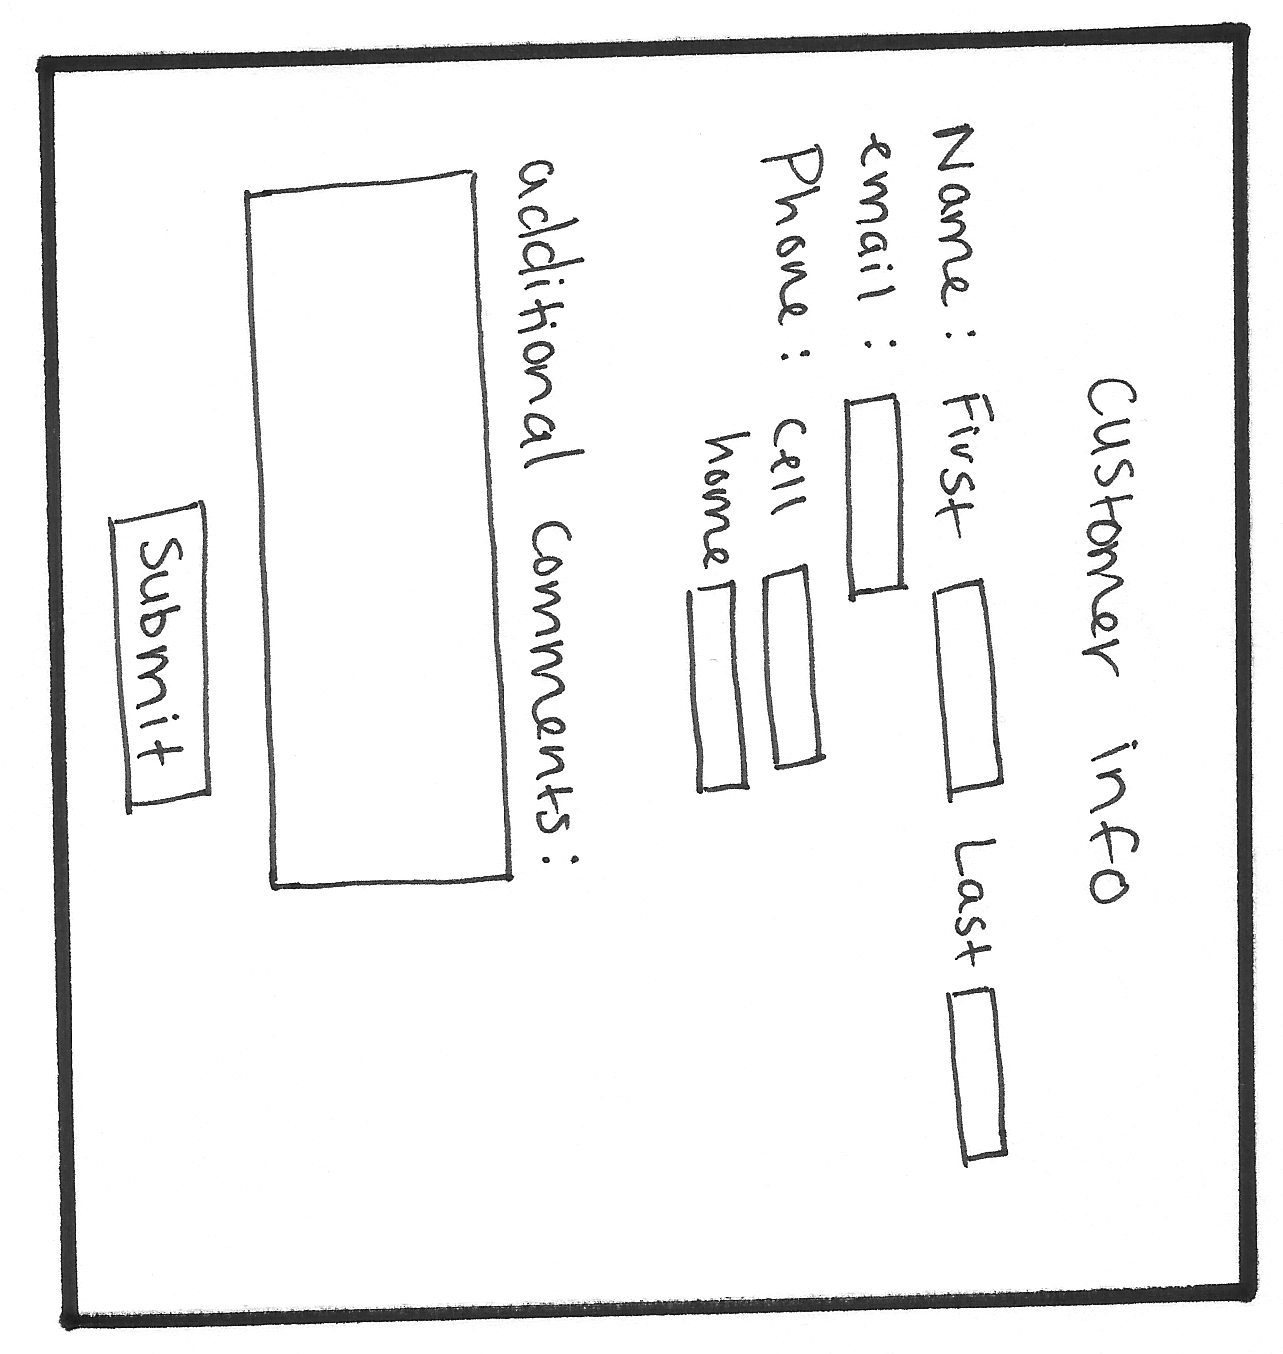 Customer info
Name: First Last
email:
Phone: Cell
home
additional Comments:
Submit